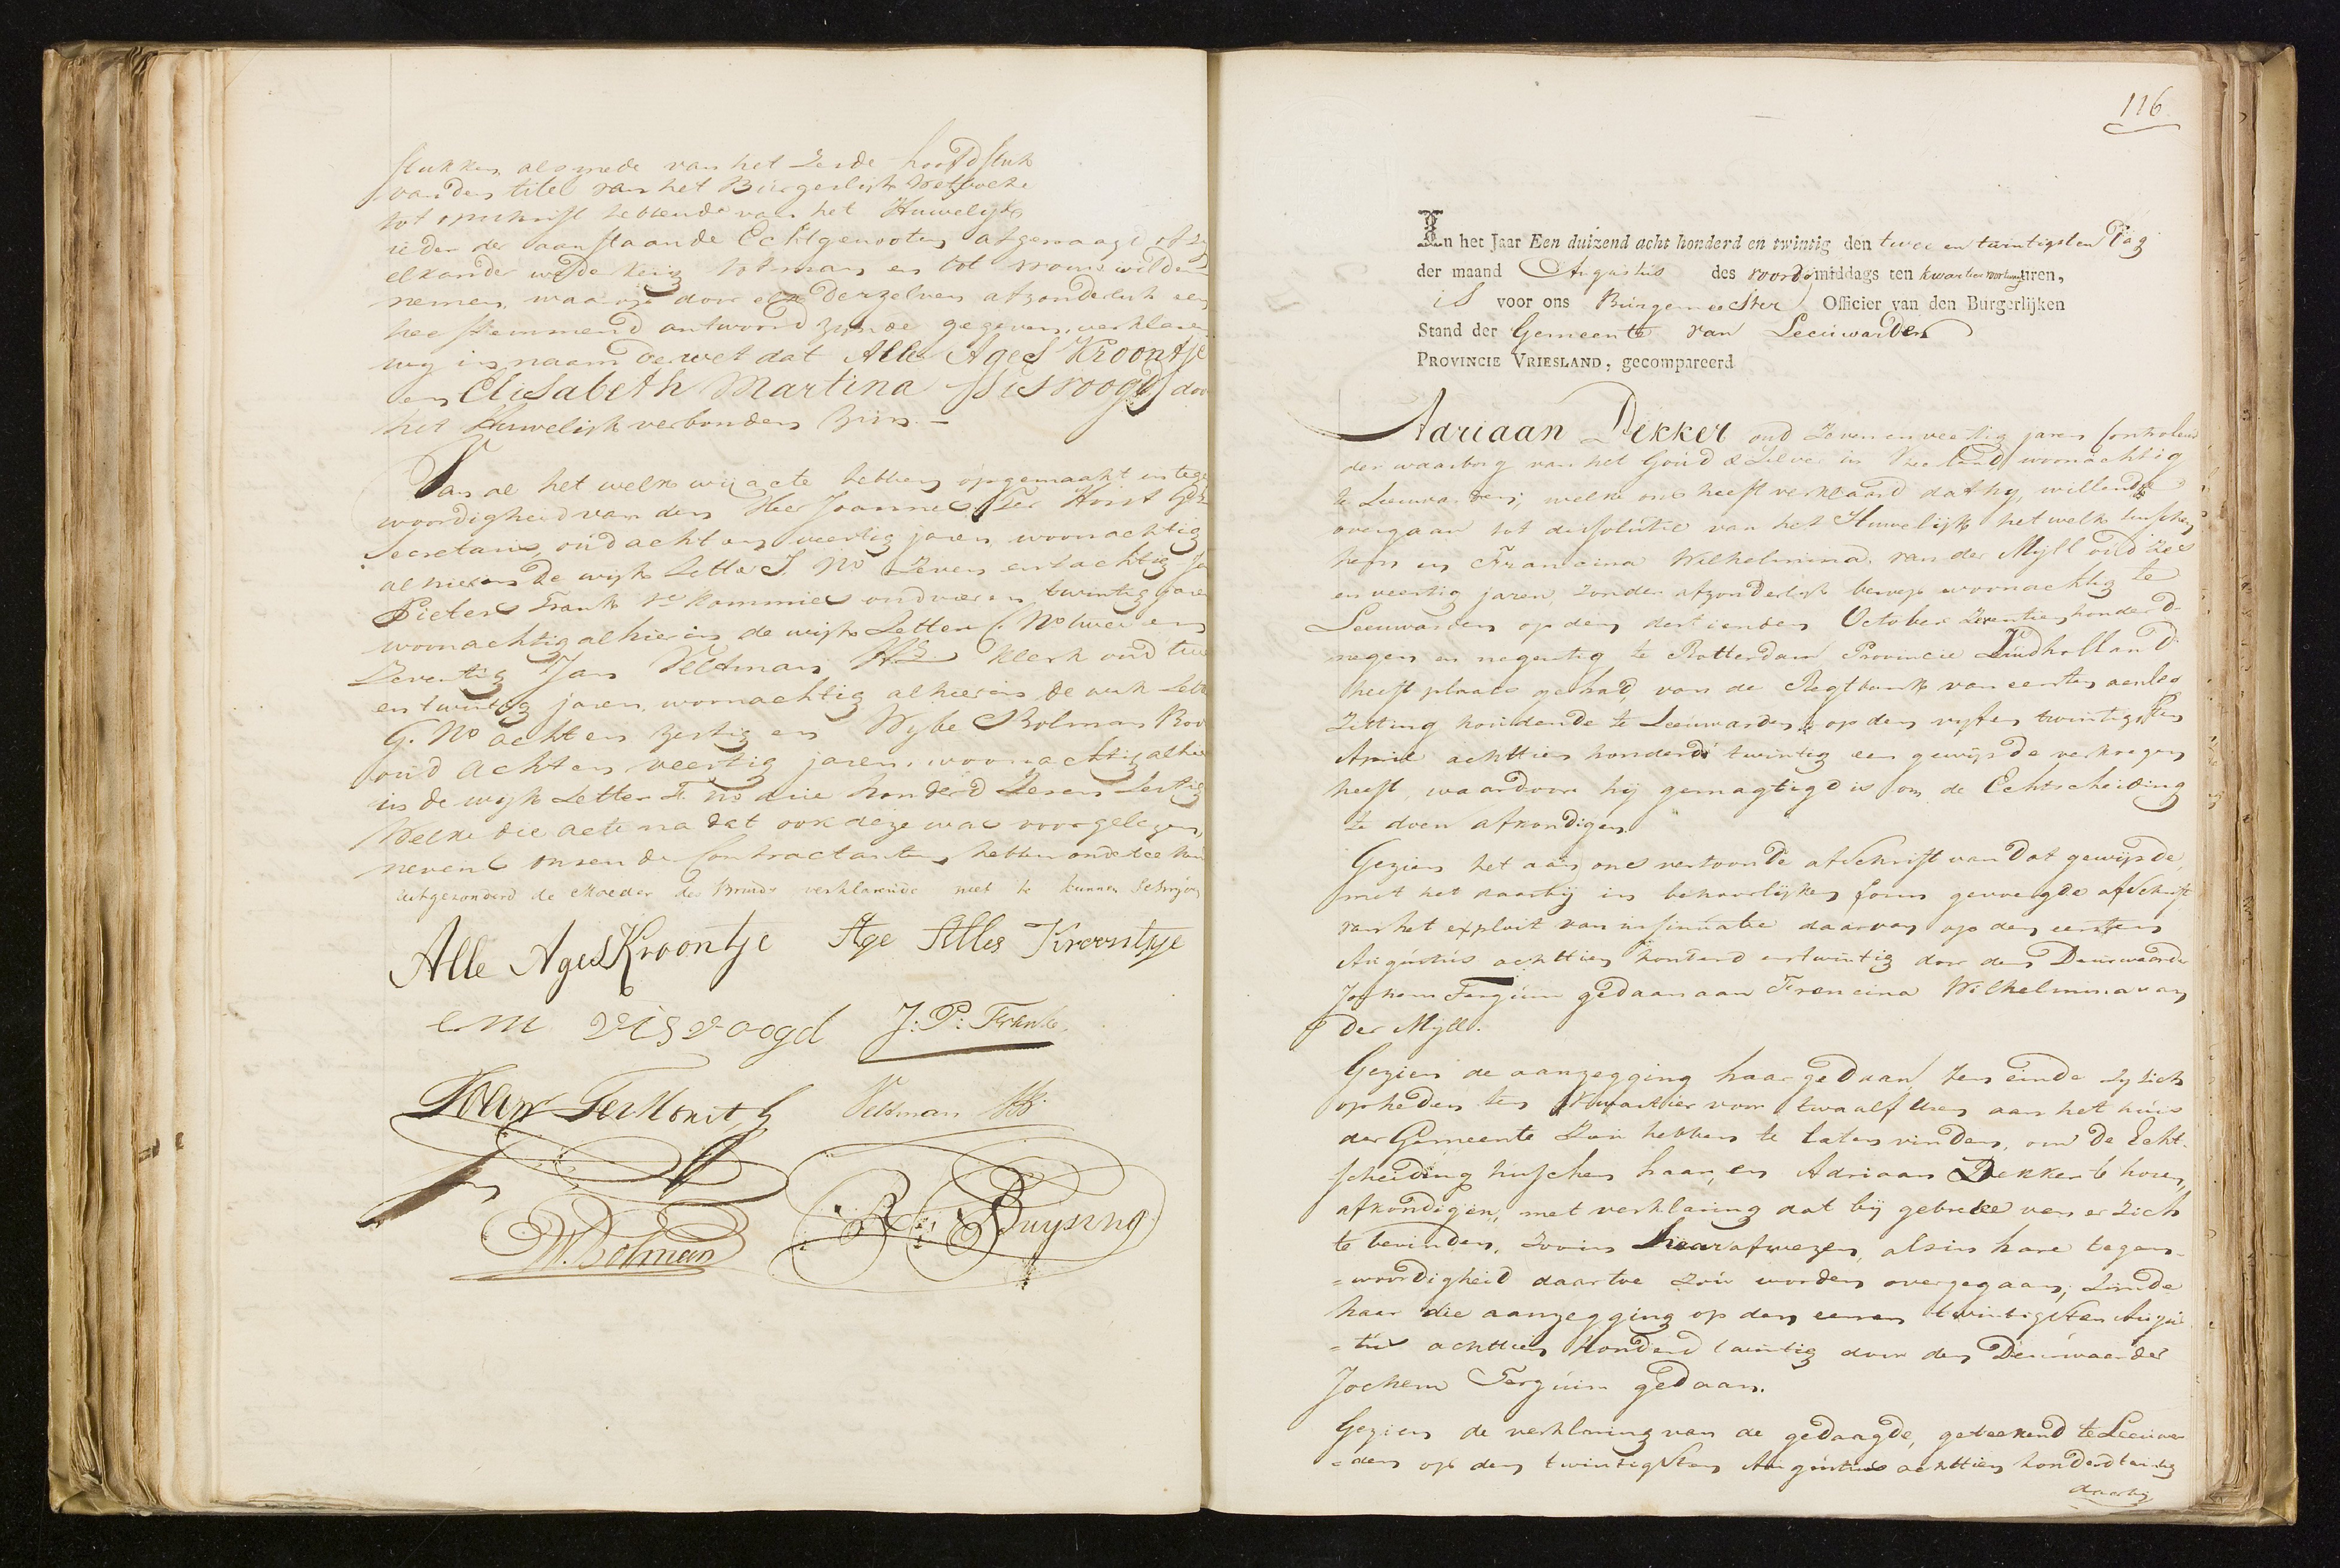 stukken, alsmede van het zesde hoofdstuk
van den titel van het Burgerlijk Wetboek
tot opschrift hebbende van het Huwelijk
ieder der aanstaande Echtgenooten afgevraagd of zij
elkander wederkeerig tot man en tot vrouw wilden
nemen, waarop door elk derzelven afzonderlijk een
toestemmend antwoord zynde gegeven, verklaren
wij in naam der wet dat Alle Ages Kroontje
en Elisabeth Martina Visvoogd door
het Huwelijk verbonden zijn. -
Van al het welk wij acte hebben opgemaakt in tegen
woordigheid van den Heer Joannes Ter Horst
Secretaris, oud acht en veertig jaren, woonachtig
alhier in de wijk Letter I. No Zeven en tachtig
Pieter Frank kommies oud vier en twintig jaren
woonachtig alhier in de wijk Letter C. No twee en
Zeventig Jan Veltman Klerk oud twee
en twintig jaren, woonachtig alhier in de wijk Letter
G. No acht en zestig en Wybe Bolman Bode
oud acht en veertig jaren, woonachtig alhier
in de wijk Letter F. no drie honderd Zeven en Zestig
Welke die acte na dat ook deze was voorgelezen,
nevens onsen de Contractanten hebben onderteekend
uitgezonderd de Moeder der Bruid verklarende niet te kunnen Schrijven
Alle Ages Kroontje Age Alles Kroontje
E M Visvoogd J: P: Frank
Joann Ter Horst Veltman
W. Bolman Buysing
116
In het Jaar Een duizend acht honderd en twintig den twee en twintigsten Dag
der maand Augustus des voordemiddags ten kwartier voor twaalf uren,
is voor ons Burgemeester Officier van den Burgerlijken
Stand der Gemeente van Leeuwarden
PROVINCIE VRIESLAND, gecompareerd
Adriaan Dekker oud Zeven en veertig jaren Controleur
der waarborg van het Goud & Zilver in Vriesland woonachtig
te Leeuwarden; welke ons heeft verklaard dat hy, willende
overgaan tot dissolutie van het Huwelijk het welk tusschen
hem en Francina Wilhelmina van der Myll oud zes
en veertig jaren, zonder afzonderlijk beroep woonachtig te
Leeuwarden op den dertienden October Zeventien honderd
negen en negentig te Rotterdam Provincie Zuidholland
heeft plaats gehad, van de Regtbank van eersten aanleg
zitting houdende te Leeuwarden, op den vyf en twintigsten
April achttien honderd twintig een gewijsde verkregen
heeft, waardoor hij gemagtigd is om de Echtscheiding
te doen afkondigen
Gezien het aan ons vertoonde afschrift van dat gewijsde,
met het daarbij in behoorlijken form gevoegde afschrift
van het exploit van insinuatie daarvan op den eersten
Augustus achttien honderd en twintig door den Deurwaarder
Jochem Fergúin gedaan aan Francina Wilhelmina van
der Myll.
Gezien de aanzegging haar gedaan, ten einde zy zich
op heden ten kwartier voor twaalf uren aan het huis
der Gemeente zou hebben te laten vinden, om de Echt-
scheiding tusschen haar, en Adriaan Dekker te hooren
afkondigen, met verklaring dat bij gebreke van er zich
te bevinden, zoo in haar afwezen, als in hare tegen-
=woordigheid daartoe zou worden overgegaan; zynde
haar die aanzegging op den eenen twintigsten Augus
=tus achttien honderd twintig door den Deurwaarder
Jochem Fergúin gedaan.
Gezien de verklaring van de gedaagde, geteekend te Leeuwar
=den op den twintigsten Augustus achttien honderd twintig
daarbij